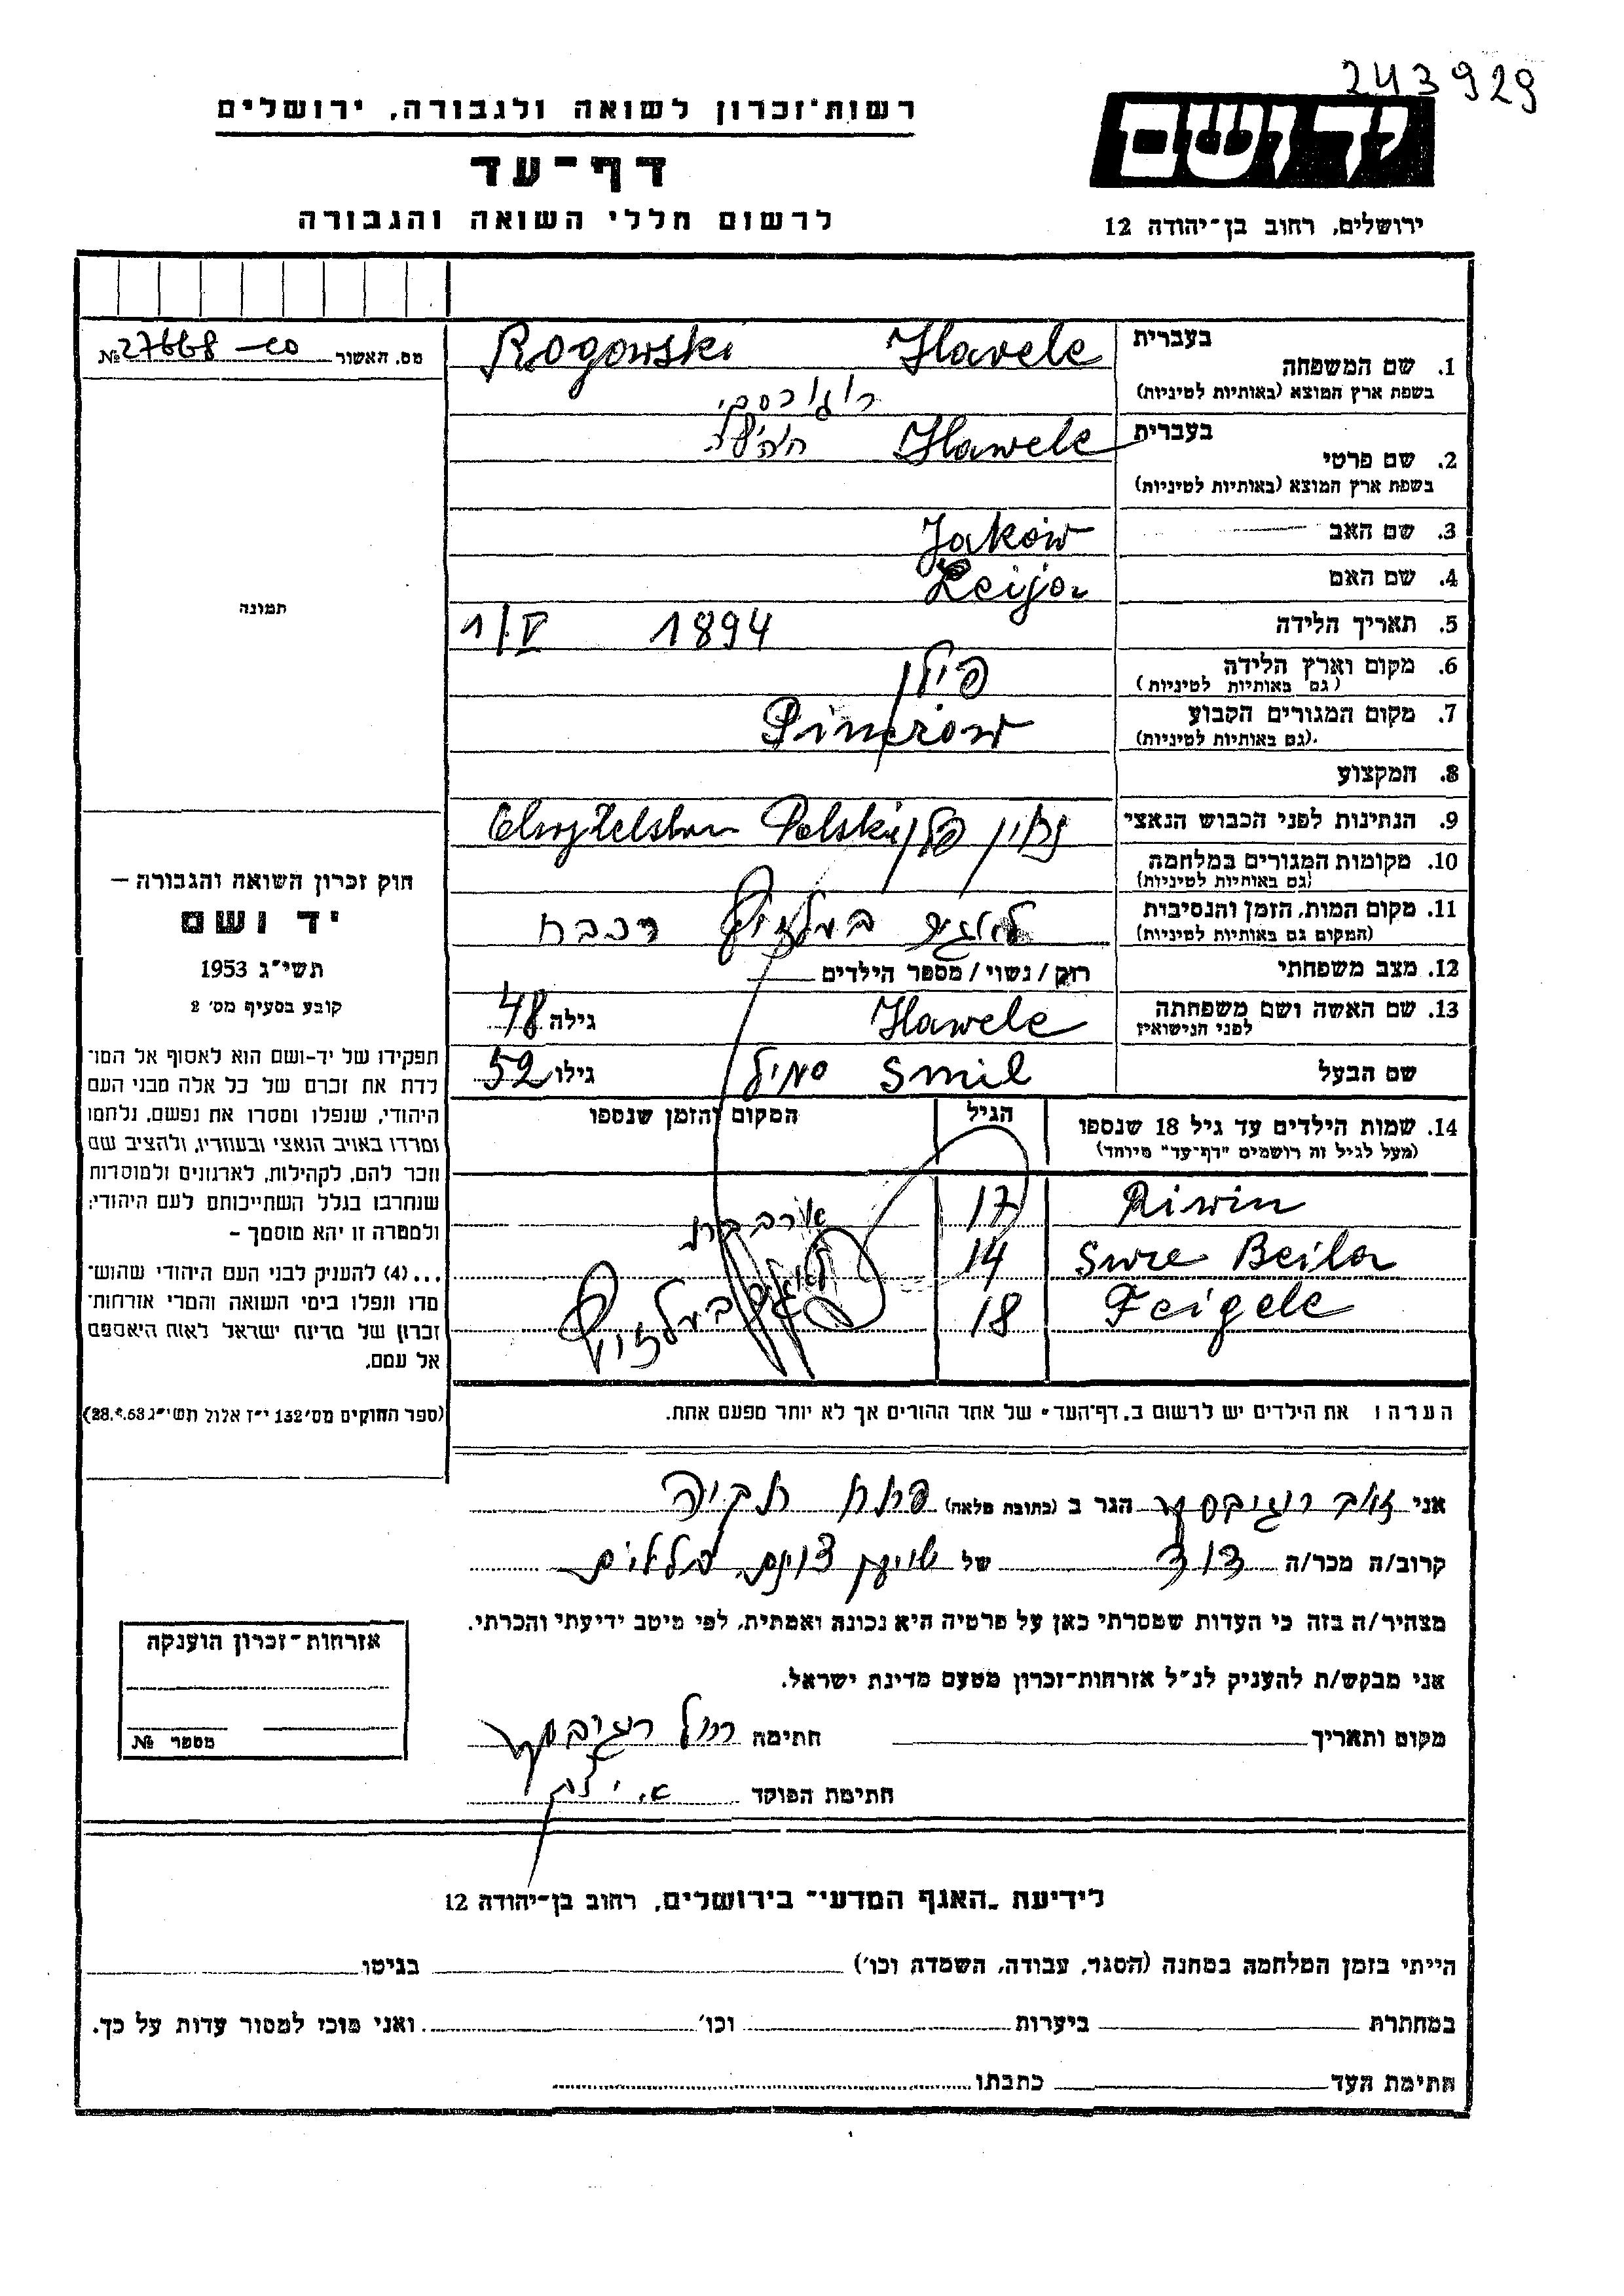 243929
רשות־זכרון לשואה ולגבורה, ירושלים
יד ושם
דף־עד
לרשום חללי השואה והגבורה
ירושלים, רחוב בן־יהודה 12
מס. האשור №
בעברית
Rogowski Hawele
1. שם המשפחה
בשפת ארץ המוצא (באותיות לטיניות)
בעברית
Hawele
2. שם פרטי
בשפת ארץ המוצא (באותיות לטיניות)
3. שם האב Jakow
4. שם האם Leija
5. תאריך הלידה 1894 1/V
6. מקום וארץ הלידה פולין
(גם באותיות לטיניות)
7. מקום המגורים הקבוע
(גם באותיות לטיניות).
8. המקצוע
9. הנתינות לפני הכבוש הנאצי Polski
10. מקומות המגורים במלחמה
(גם באותיות לטיניות)
11. מקום המות, הזמן והנסיבות
(המקום גם באותיות לטיניות)
12. מצב משפחתי רוק/נשוי/מספר הילדים
13. שם האשה ושם משפחתה Hawele גילה 48
לפני הנישואין
שם הבעל Smil סמיל גילו 52
14. שמות הילדים עד גיל 18 שנספו הגיל המקום והזמן שנספו
(מעל לגיל זה רושמים "דף־עד" מיוחד)
Riwin 17
Sure Beila 14
Feigele 18
הערה: את הילדים יש לרשום ב„דף־העד״ של אחד ההורים אך לא יותר מפעם אחת.
תמונה
חוק זכרון השואה והגבורה —
יד ושם
תשי״ג 1953
קובע בסעיף מס׳ 2
תפקידו של יד־ושם הוא לאסוף אל המו־
לדת את זכרם של כל אלה מבני העם
היהודי, שנפלו ומסרו את נפשם, נלחמו
ומרדו באויב הנאצי ובעוזריו, ולהציב שם
וזכר להם, לקהילות, לארגונים ולמוסדות
שנחרבו בגלל השתייכותם לעם היהודי;
ולמטרה זו יהא מוסמך –
...(4) להעניק לבני העם היהודי שהוש־
מדו ונפלו בימי השואה והמרי אזרחות־
זכרון של מדינת ישראל לאות היאספם
אל עמם.
(ספר החוקים מס׳ 132 י״ז אלול תשי״ג 28.8.53)
אני זאב רוגובסקי הגר ב (כתובת מלאה) פתח תקוה
קרוב/ה מכר/ה דוד של
מצהיר/ה בזה כי העדות שמסרתי כאן על פרטיה היא נכונה ואמתית, לפי מיטב ידיעתי והכרתי.
אני מבקש/ת להעניק לנ״ל אזרחות־זכרון מטעם מדינת ישראל.
מקום ותאריך חתימה
חתימת הפוקד
אזרחות־זכרון הוענקה
מספר №
לידיעת „האגף המדעי״ בירושלים, רחוב בן־יהודה 12
הייתי בזמן המלחמה במחנה (הסגר, עבודה, השמדה וכו׳) בגיטו
במחתרת ביערות וכו׳ ואני מוכן למסור עדות על כך.
חתימת העד כתבתו